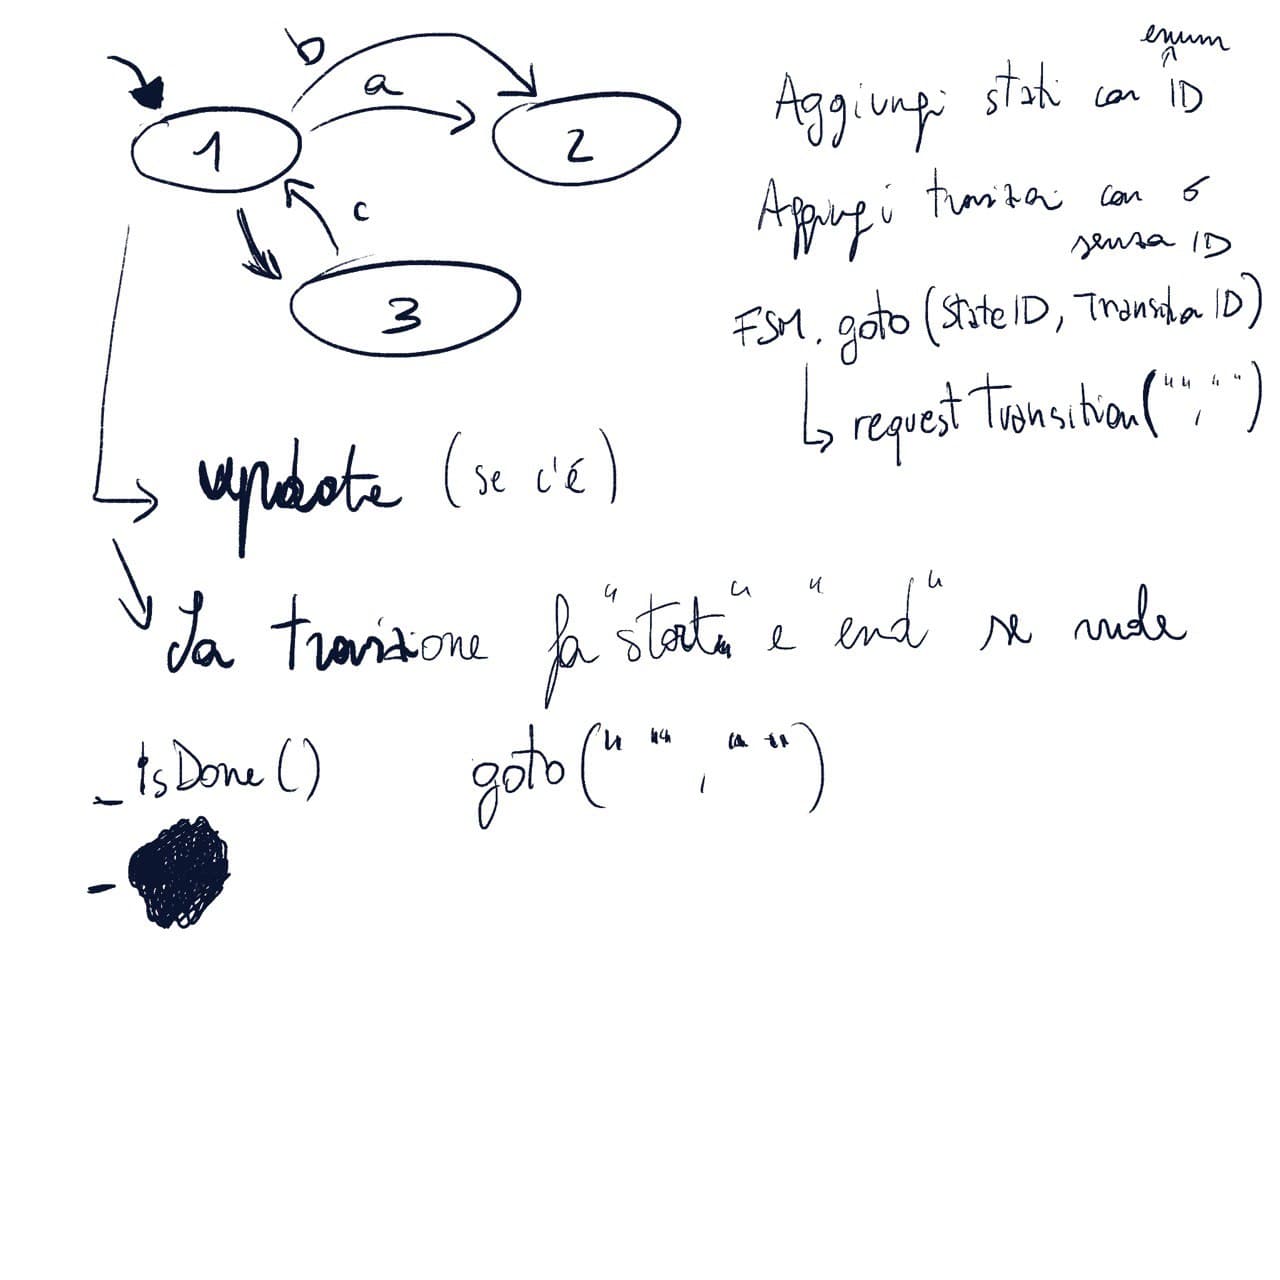 b
a
1
2
c
3
enum
Aggiungi stati con ID
Aggiungi transizioni con o
senza ID
FSM. goto (StateID, Transition ID)
request Transition (" ", " ")
update (se c'é)
La transizione fa "start" e "end" se vuole
_ IsDone ()
goto (" ", " ")
-